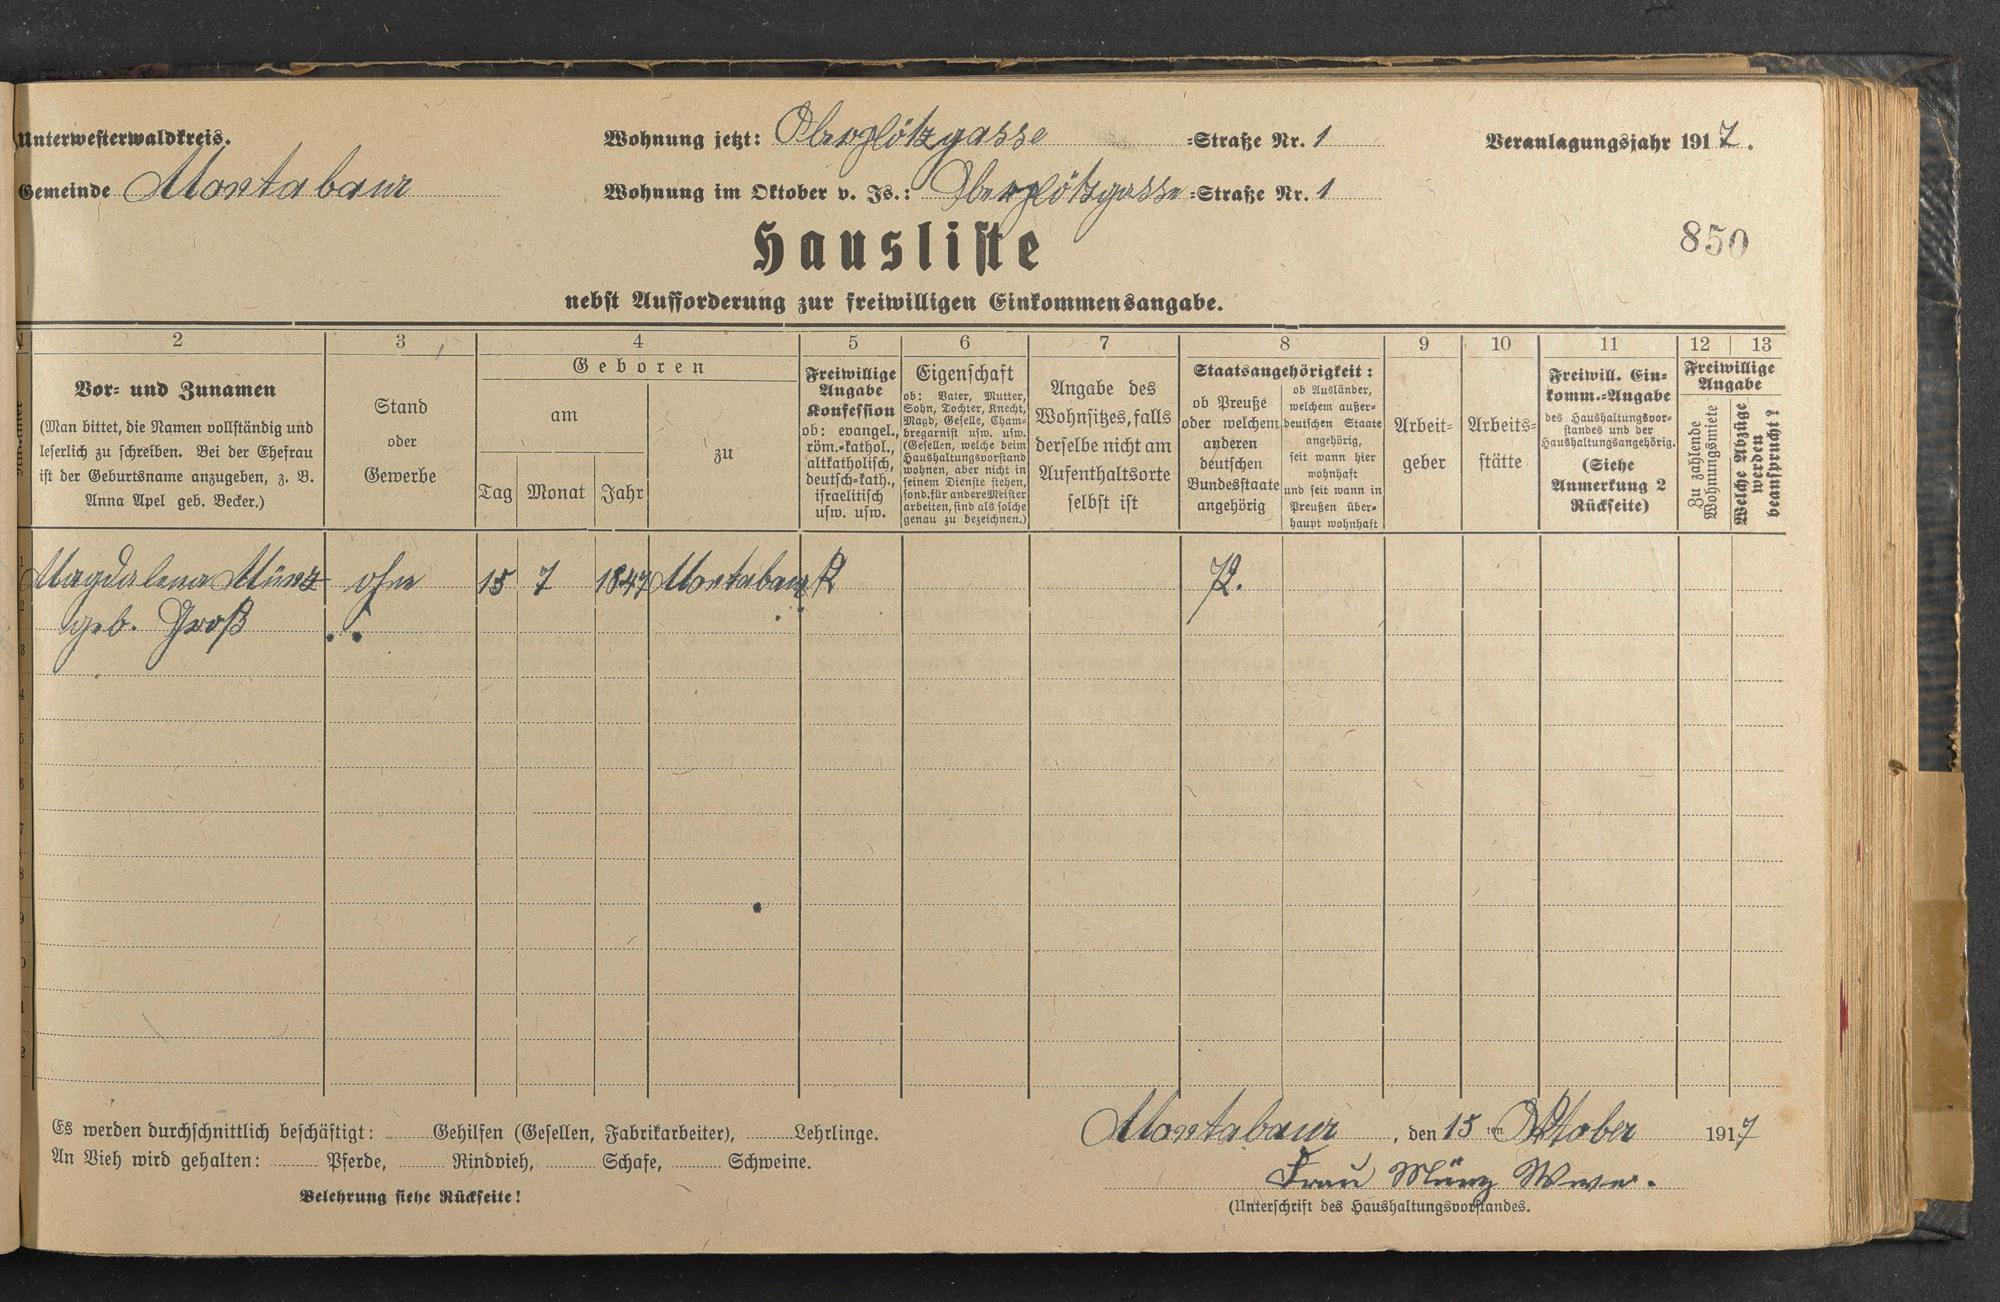 Unterwesterwaldkreis.
Gemeinde Montabaur
Wohnung jetzt: Oberplötzgasse =Straße Nr. 1
Wohnung im Oktober v. Js.: Oberplötzgasse =Straße Nr. 1
Veranlagungsjahr 1917.
850
Hausliste
nebst Aufforderung zur freiwilligen Einkommensangabe.
1 2 3 4 5 6 7 8 9 10 11 12 13
Vor- und Zunamen
(Man bittet, die Namen vollständig und
leserlich zu schreiben. Bei der Ehefrau
ist der Geburtsname anzugeben, z. B.
Anna Apel geb. Becker.)
Stand
oder
Gewerbe
Geboren
am
Tag Monat Jahr
zu
Freiwillige
Angabe
Konfession
ob: evangel.,
röm.-kathol.,
altkatholisch,
deutsch-kath.,
israelitisch
usw. usw.
Eigenschaft
ob: Vater, Mutter,
Sohn, Tochter, Knecht,
Magd, Geselle, Cham-
bregarnist usw. usw.
(Gesellen, welche beim
Haushaltungsvorstand
wohnen, aber nicht in
seinem Dienste stehen,
sond. für andere Meister
arbeiten, sind als solche
genau zu bezeichnen.)
Angabe des
Wohnsitzes, falls
derselbe nicht am
Aufenthaltsorte
selbst ist
Staatsangehörigkeit:
ob Preuße
oder welchem
anderen
deutschen
Bundesstaate
angehörig
ob Ausländer,
welchem außer-
deutschen Staate
angehörig,
seit wann hier
wohnhaft
und seit wann in
Preußen über-
haupt wohnhaft
Arbeit-
geber
Arbeits-
stätte
Freiwill. Ein-
komm.-Angabe
des Haushaltungsvor-
standes und der
Haushaltungsangehörig.
(Siehe
Anmerkung 2
Rückseite)
Freiwillige
Angabe
Zu zahlende
Wohnungsmiete
Welche Abzüge
werden
beansprucht?
1 Magdalena Münz ohne 15 7 1847 Montabaur K P.
2 geb. Groß
3
4
5
6
7
8
9
0
1
2
Es werden durchschnittlich beschäftigt: Gehilfen (Gesellen, Fabrikarbeiter), Lehrlinge.
An Vieh wird gehalten: Pferde, Rindvieh, Schafe, Schweine.
Belehrung siehe Rückseite!
Montabaur, den 15 ten Oktober 1917
Frau Münz Wwe.
(Unterschrift des Haushaltungsvorstandes.